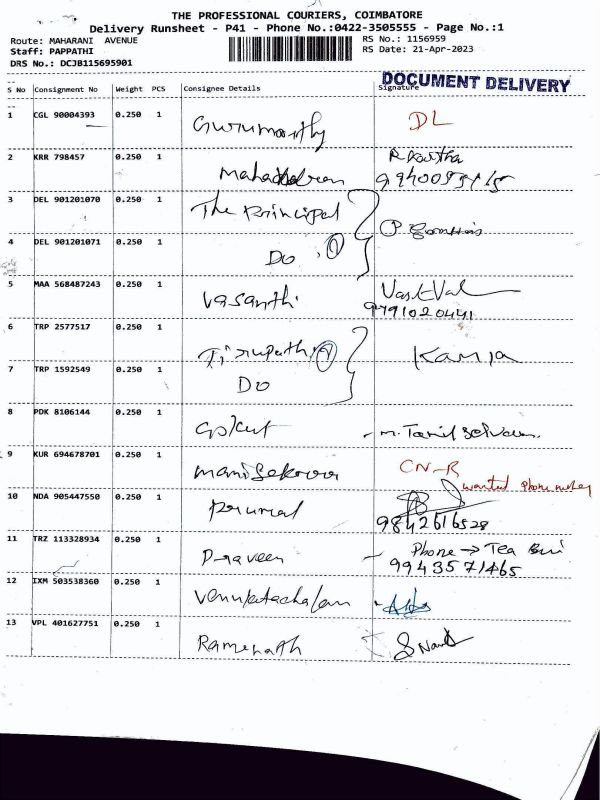 THE PROFESSIONAL COURIERS, COIMBATORE
Delivery Runsheet - P41 - Phone No.:0422-3505555 - Page No.:1
Route: MAHARANI AVENUE
RS No.: 1156959
Staff: PAPPATHI
RS Date: 21-Apr-2023
DRS No.: DCJB115695901
DOCUMENT DELIVERY
S No Consignment No Weight PCS Consignee Details Signature
1 CGL 90004393 0.250 1 Gurumoorthy DL
2 KRR 798457 0.250 1
3 DEL 901201070 0.250 1 The Principal
4 DEL 901201071 0.250 1 DO
5 MAA 568487243 0.250 1 Vasanthi
9791020441
6 TRP 2577517 0.250 1 Tirupathi Kavya
7 TRP 1592549 1 0.250 DO
8 PDK 8106144 0.250 1 Gokul m. Tamil Selvan
9 KUR 694678701 0.250 1 CN-R
wanted phone
10 NDA 905447550 0.250 1 Perumal
9842616528
11 TRZ 113328934 0.250 1 Praveen Phone → Tea
9943571465
12 IXM 503538360 0.250 1 Venkatachalam
13 VPL 401627751 0.250 1 Ramanath